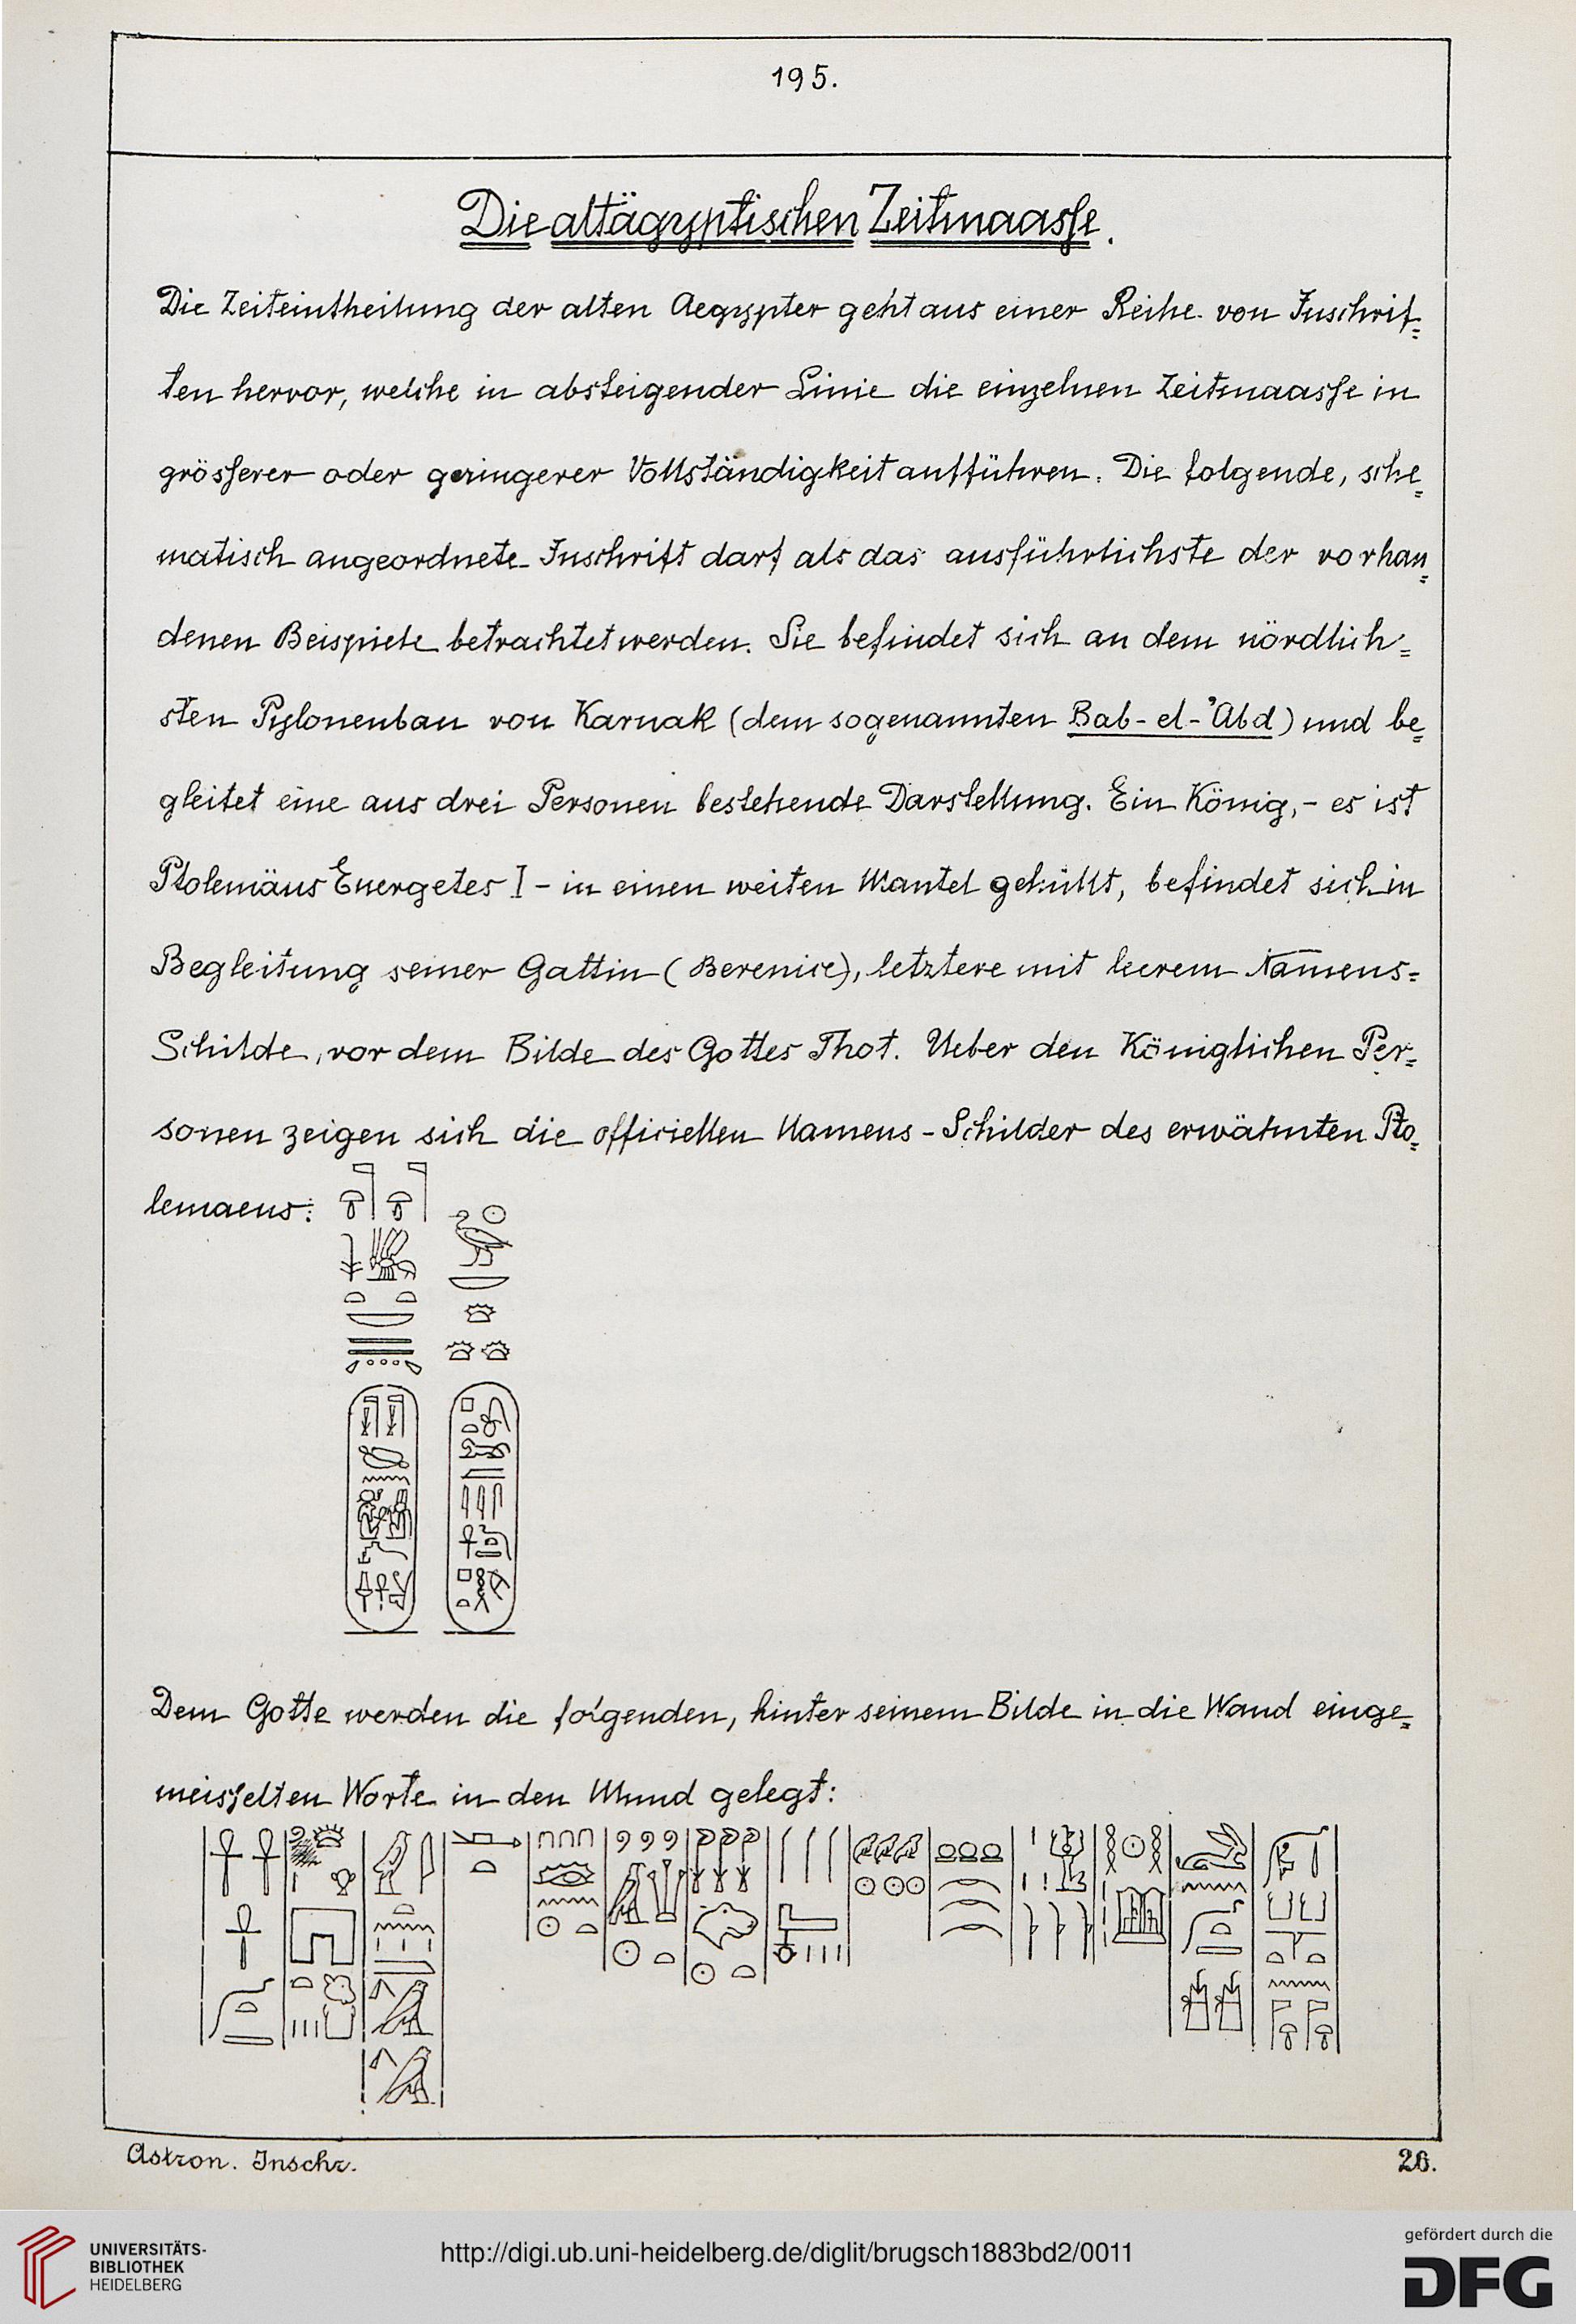 195.
Die altägyptischen Zeitmaasse.
Die Zeiteintheilung der alten Aegypter geht aus einer Reihe von Inschrif=
ten hervor, welche in absteigender Linie die einzelnen Zeitmaasse in
grösserer oder geringerer Vollständigkeit aufführen. Die folgende, sche=
matisch angeordnete Inschrift darf als das ausführlichste der vorhan=
denen Beispiele betrachtet werden. Sie befindet sich an dem nördlich=
sten Pylonenbau von Karnak (dem sogenannten Bab-el-'Abd) und be=
gleitet eine aus drei Personen bestehende Darstellung. Ein König,- es ist
Ptolemäus Euergetes I - in einen weiten Mantel gehüllt, befindet sich in
Begleitung seiner Gattin (Berenice), letztere mit leerem Namens=
Schilde, vor dem Bilde des Gottes Thot. Ueber den Königlichen Per=
sonen zeigen sich die officiellen Namens-Schilder des erwähnten Pto=
lemaeus:
Dem Gotte werden die folgenden, hinter seinem Bilde in die Wand einge=
meisselten Worte in den Mund gelegt:
Astron. Inschr.
26.
UNIVERSITÄTS-
BIBLIOTHEK
HEIDELBERG
http://digi.ub.uni-heidelberg.de/diglit/brugsch1883bd2/0011
gefördert durch die
DFG